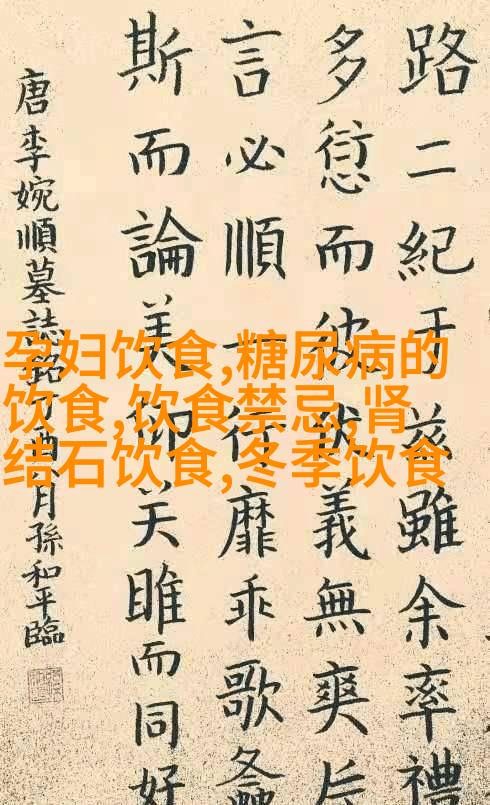 路二紀于兹雖余率禮
多愆而彼義無爽
言必順行靡乖歌螽
斯而論美仰关雎而同好
唐李婉順墓誌銘酉月孫和平臨
孕妇饮食,糖尿病的
饮食,饮食禁忌,肾
结石饮食,冬季饮食